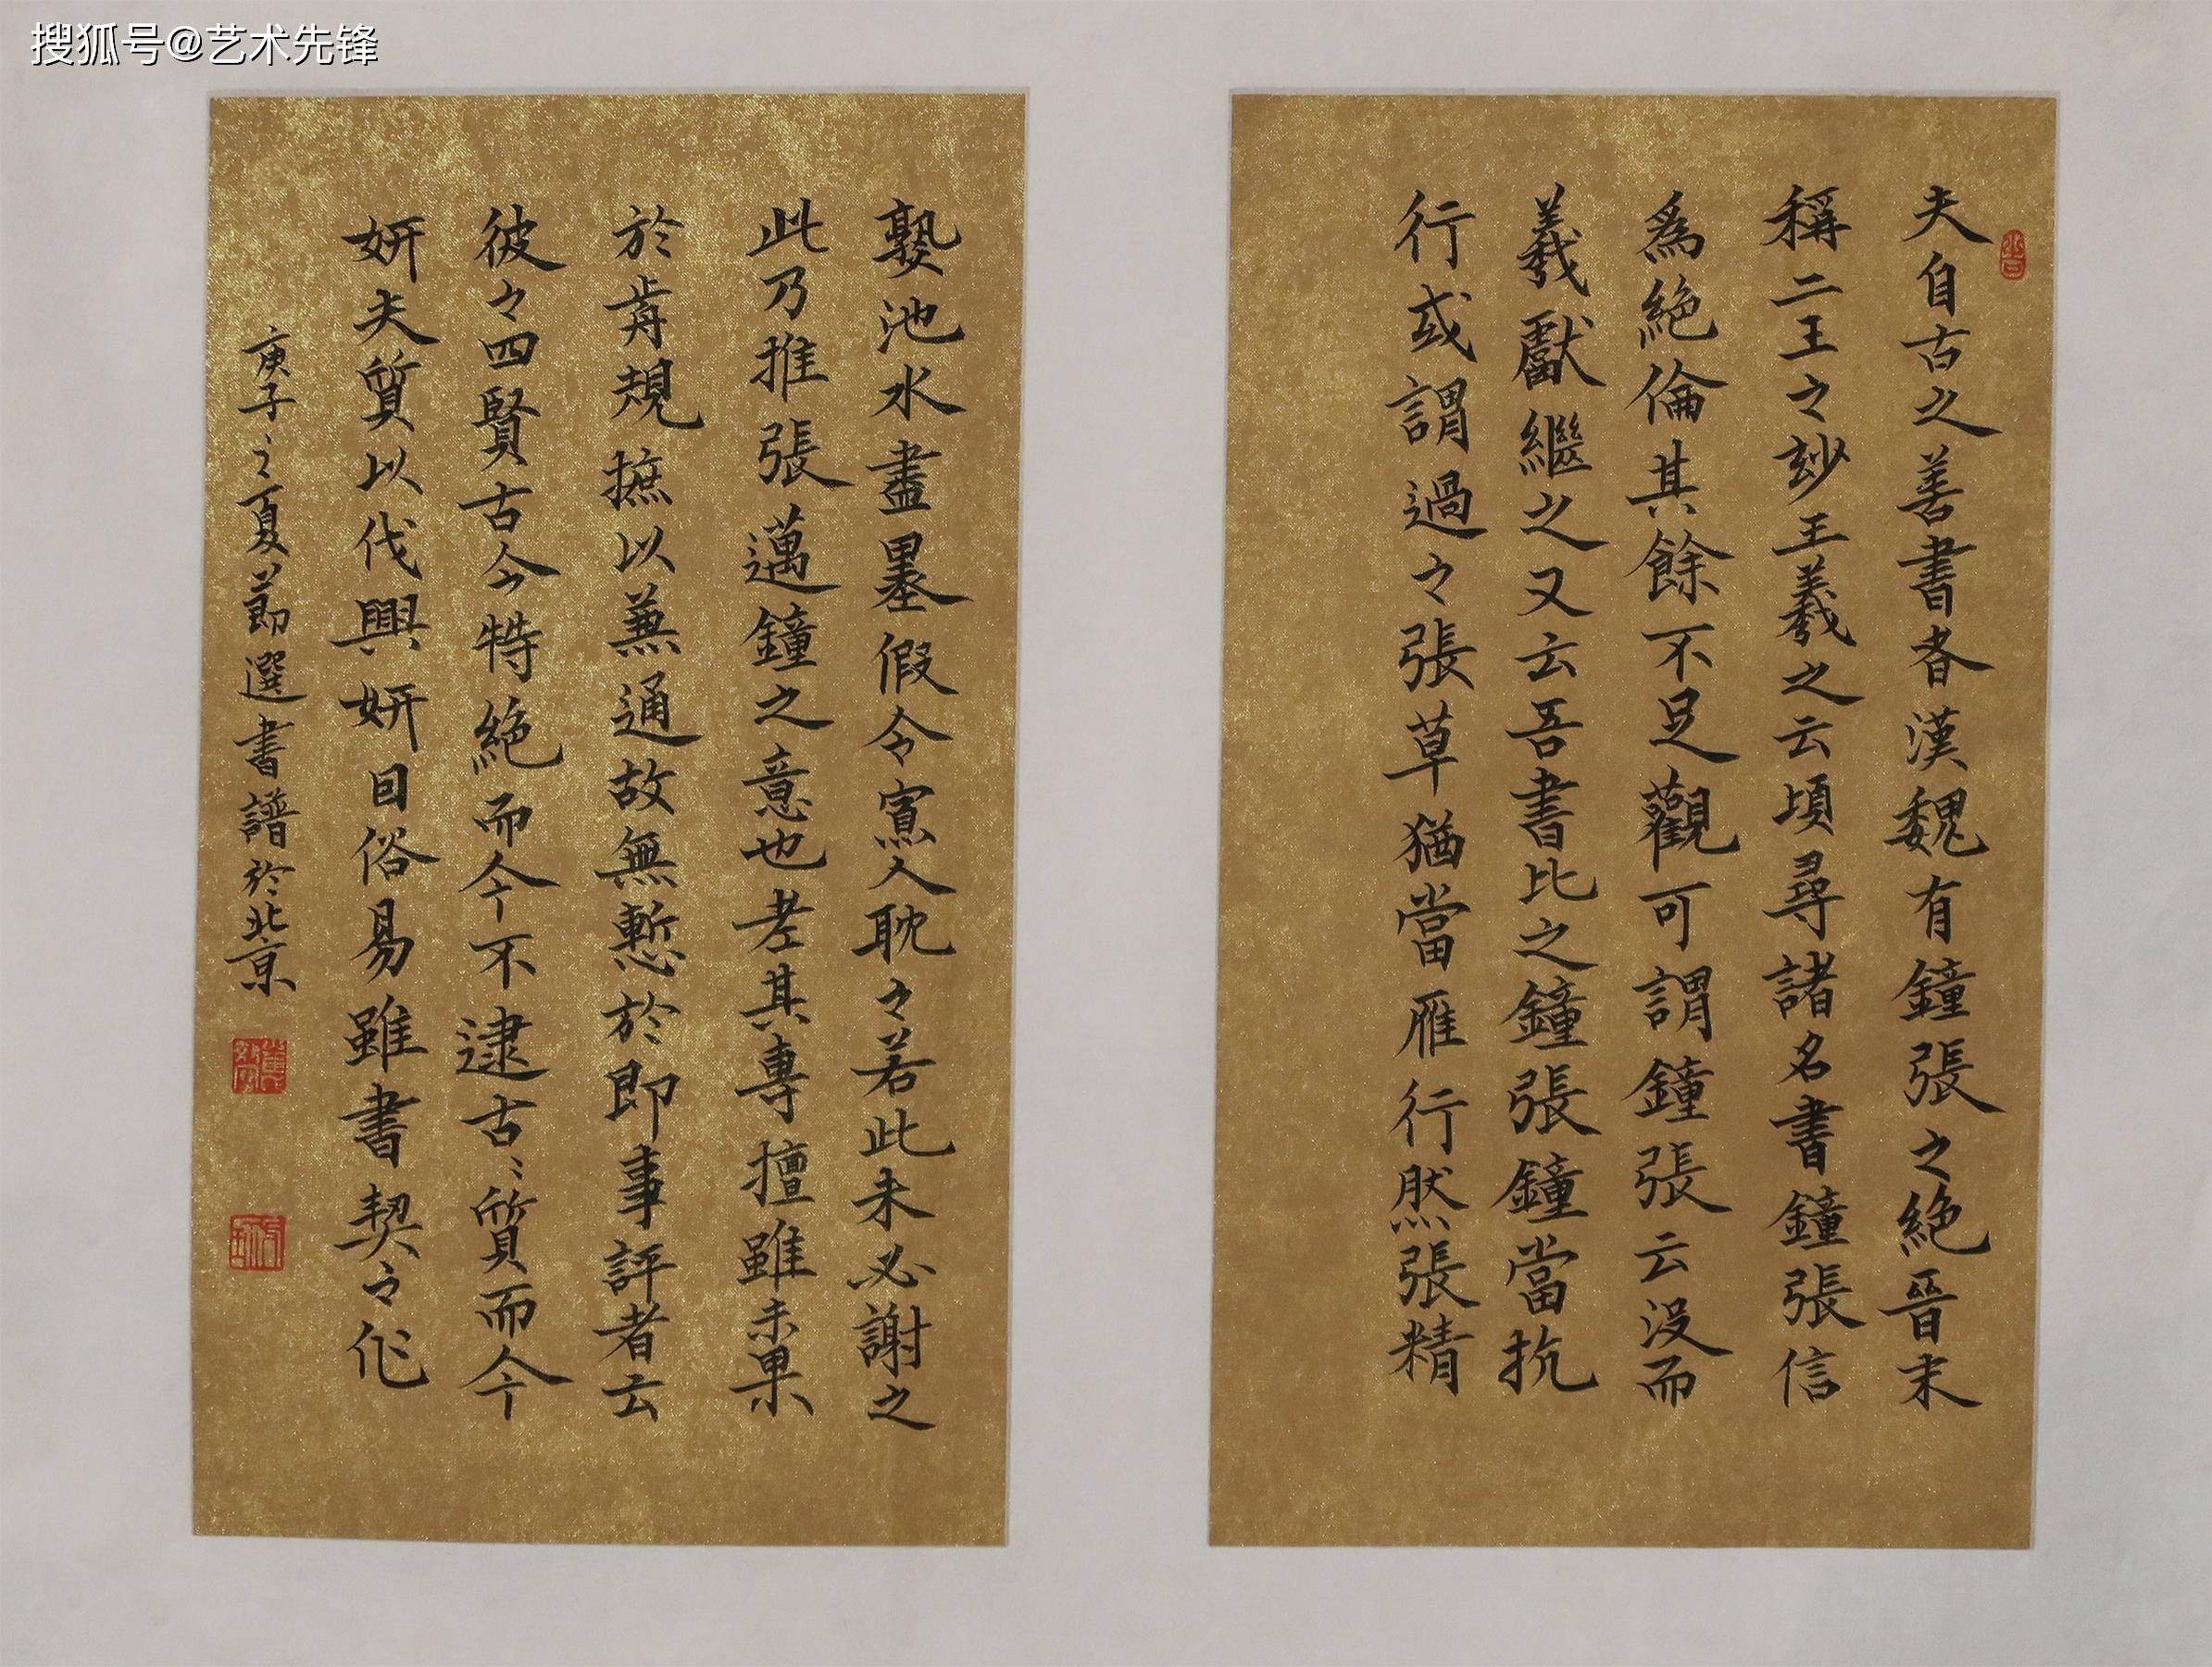 搜狐号@艺术先锋
夫自古之善書者漢魏有鐘張之絶晉末
稱二王之妙王羲之云頃尋諸名書鐘張信
爲絶倫其餘不足觀可謂鐘張云没而
羲獻繼之又云吾書比之鐘張鐘當抗
行或謂過之張草猶當雁行然張精
熟池水盡墨假令寡人耽之若此未必謝之
此乃推張邁鐘之意也考其專擅雖未果
於前規摭以兼通故無慙於即事評者云
彼之四賢古今特絶而今不逮古〻質而今
妍夫質以代興妍因俗易雖書契之作
庚子〻之夏節選書譜於北京